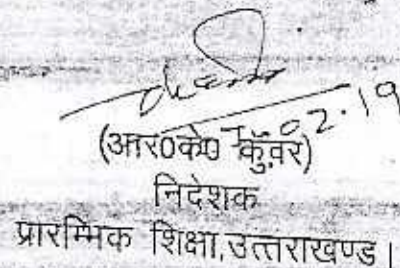 02.19
(आर०के० कुँवर)
निदेशक
प्रारम्भिक शिक्षा,उत्तराखण्ड।